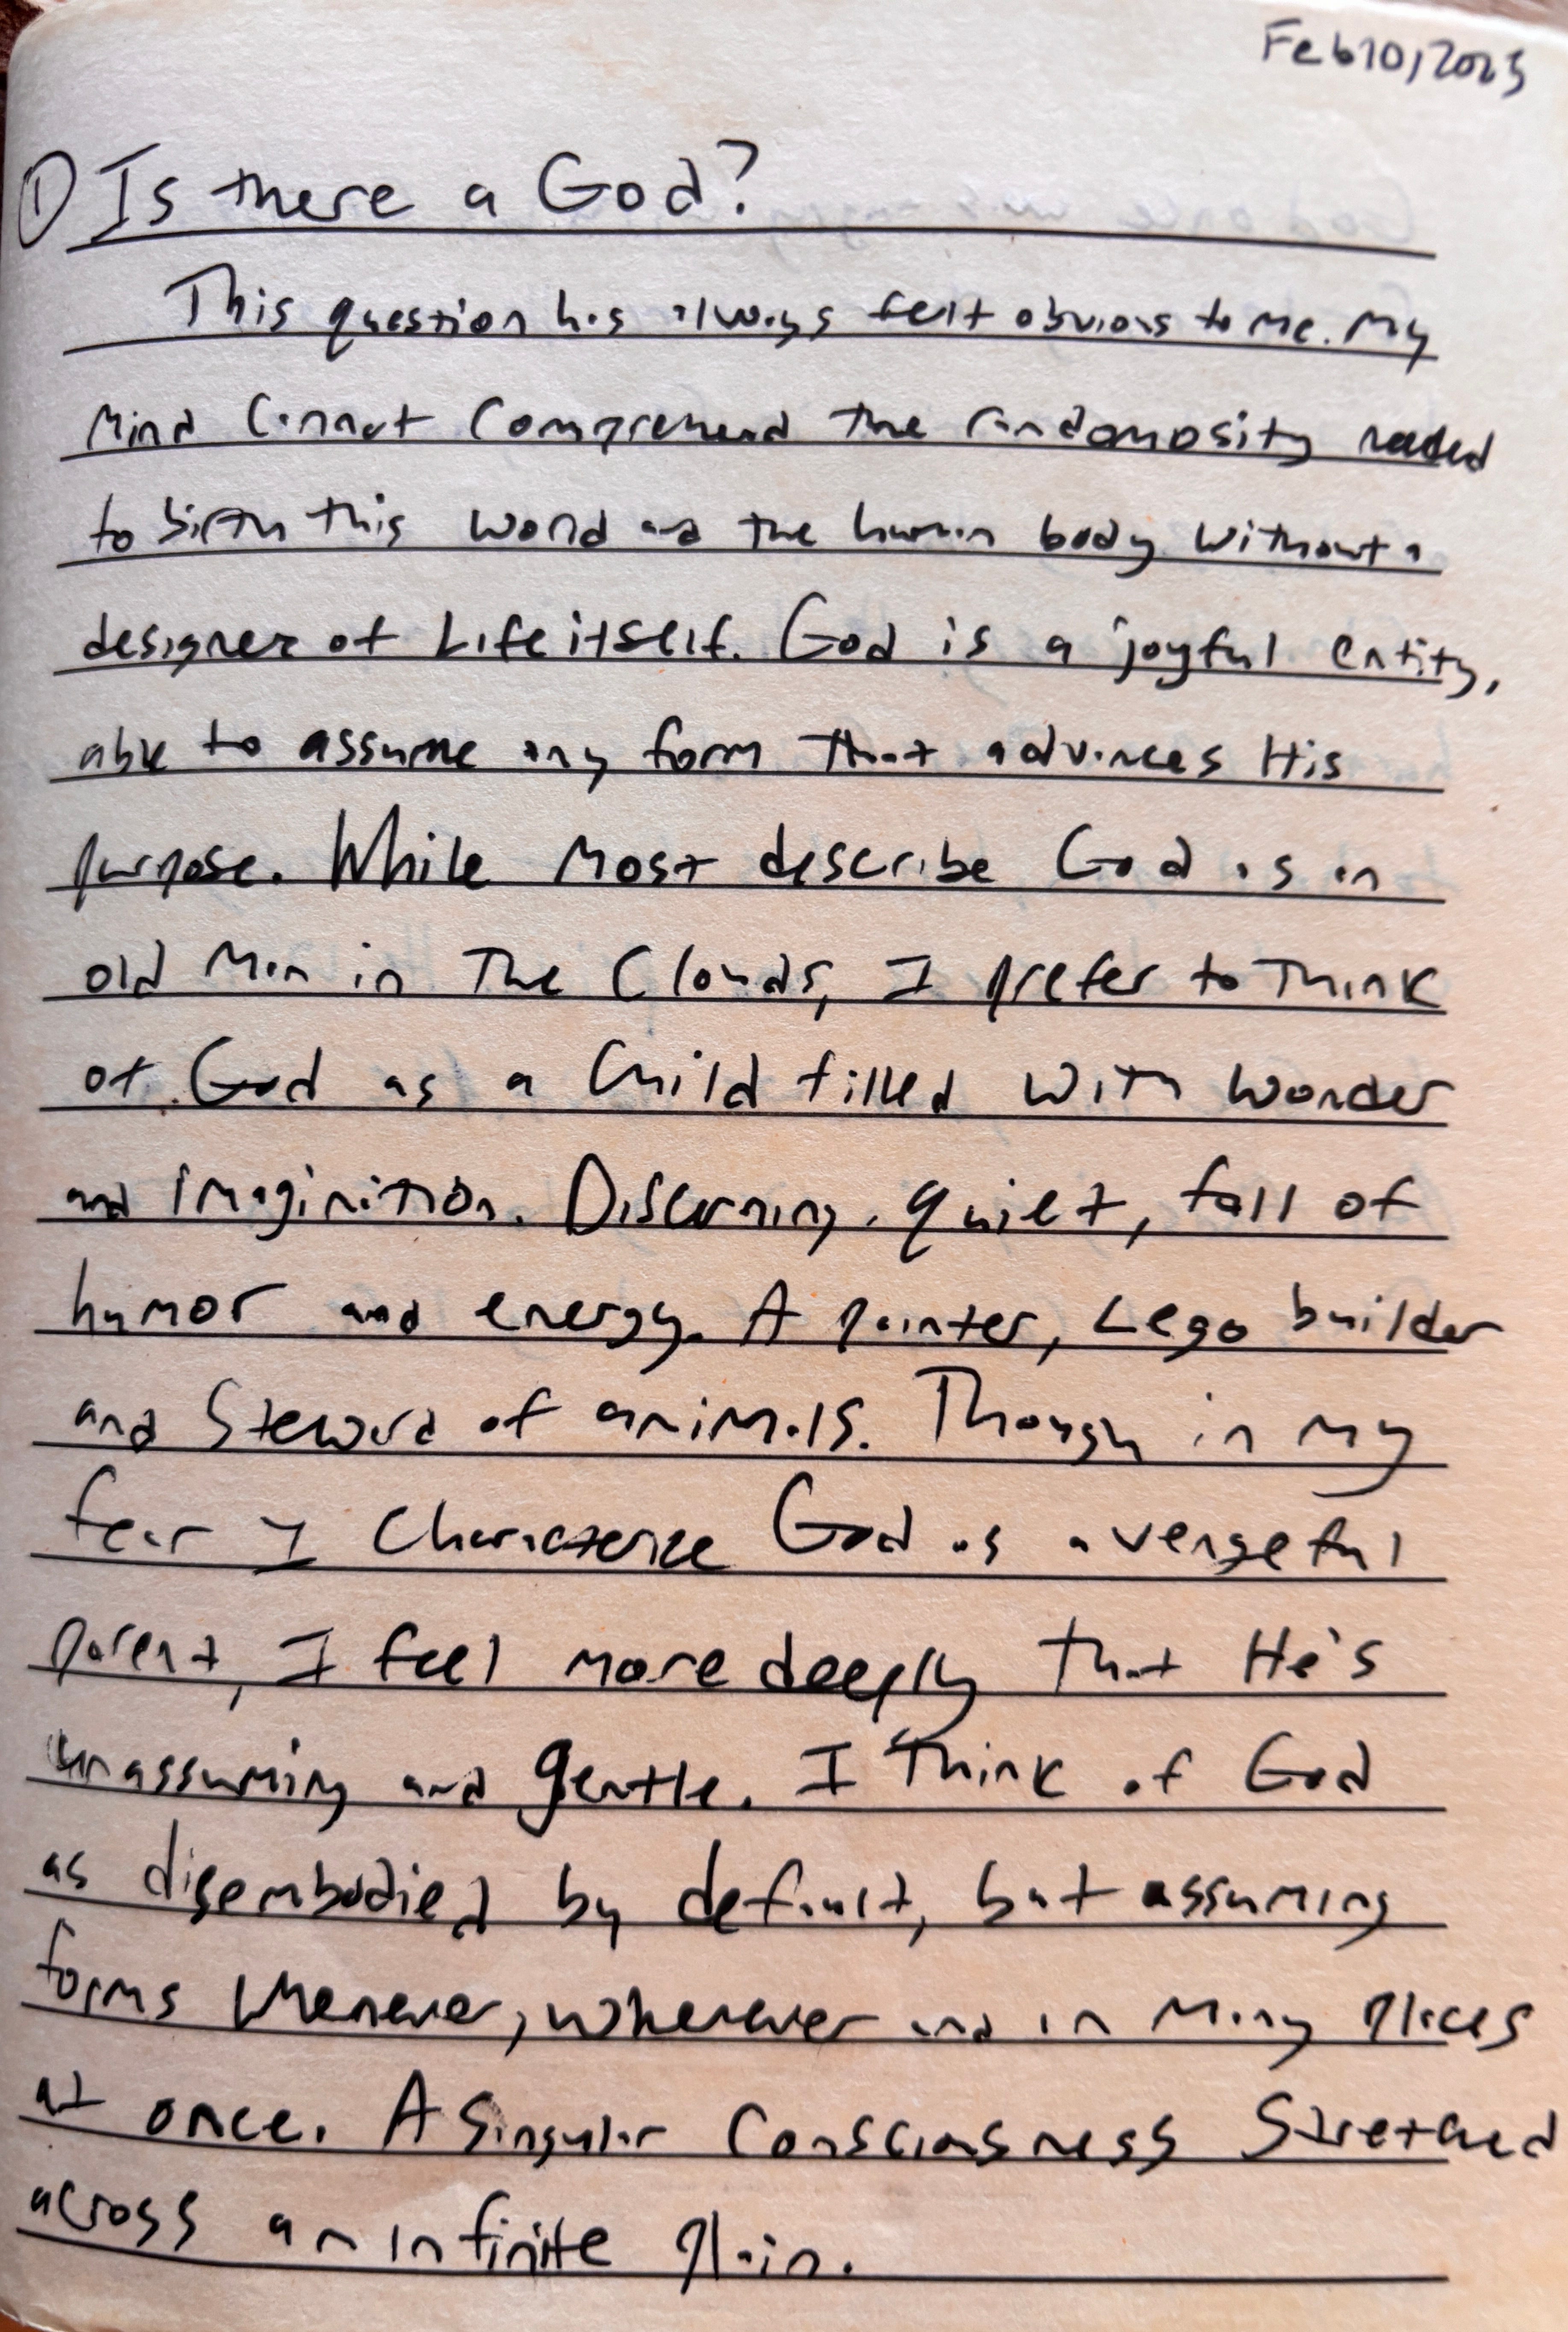 Feb 10, 2025
① Is there a God?
This question has always felt obvious to me. My
mind cannot comprehend the randomosity needed
to birth this world and the human body without a
designer of Life itself. God is a joyful entity,
able to assume any form that advances His
purpose. While most describe God as an
old man in the clouds, I prefer to think
of God as a child filled with wonder
and imagination. Discerning, quiet, full of
humor and energy. A painter, Lego builder
and steward of animals. Though in my
fear I characterize God as a vengeful
parent, I feel more deeply that He's
unassuming and gentle. I think of God
as disembodied by default, but assuming
forms whenever, wherever and in many places
at once. A singular consciousness stretched
across an infinite plain.